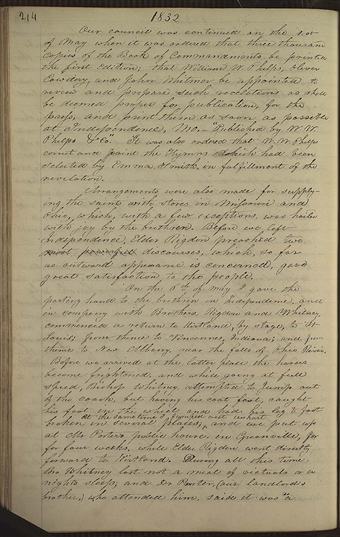 214 1832
Our council was continued on the 1st
of May when it was ordered that three thousand
copies of the Book of Commandments be printed
the first edition; that William W. Phelps, Oliver
Cowdery, and John Whitmer be appointed to
review and prepare such revelations as shall
be deemed proper for publication, for the
press, and print them as soon as possible
at Independence, Mo.— "Published by W. W.
Phelps & Co." It was also ordered that W. W. Phelps
correct and print the Hymns which had been
selected by Emma Smith in fulfillment of the
revelation.
Arrangements were also made for supply-
ing the saints with stores in Missouri and
Ohio, which, with a few exceptions, was hailed
with joy by the brethren. Before we left
Independence, Elder Rigdon preached two
most powerful discourses, which, so far
as outward appearance is concerned, gave
great satisfaction to the people.
On the 6th of May I gave the
parting hand to the brethren in Independence, and
in company with Brothers Rigdon and Whitney,
commenced a return to Kirtland, by stage, to St
Louis; from thence to Vincennes, Indiana; and from
thence to New Albany, near the falls of Ohio River.
Before we arrived at the latter place the horses
became frightened, and while going at full
speed, Bishop Whitney attempted to jump out
of the coach, but having his coat fast, caught
his foot in the wheel, and had his leg & foot
at the same time I jumped out unhurt
broken in several places, and we put up
at Mr Porter's public house, in Greenville, for
four weeks, while Elder Rigdon went directly
forward to Kirtland. During all this time
Bro Whitney lost not a meal of victuals or a
nights sleep, and Dr Porter, (our landlord's
brother,) who attended him, said it was "a